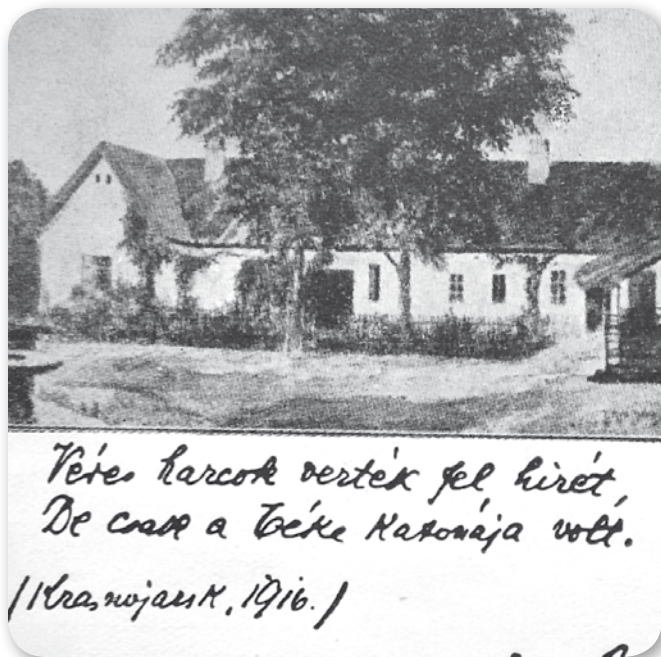 Véres harcok verték fel hirét,
De csak a béke Katonája volt.
/Krasnojarsk, 1916./